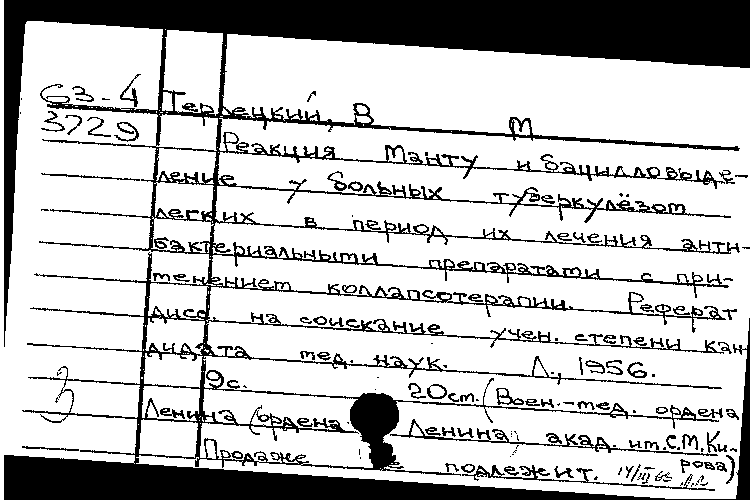 63-4 Терлецкий, В М
3729
Реакция Манту и бацилловыде-
ление у больных туберкулёзом
легких в период их лечения анти-
бактериальными препаратами с при-
менением коллапсотерапии. Реферат
дисс. на соискание учен. степени кан-
дидата мед. наук. Л., 1956.
9с. 20см. (Воен.-мед. ордена
3 Ленина (ордена Ленина) акад. им. С.М. Ки-
рова)
Продаже не подлежит.